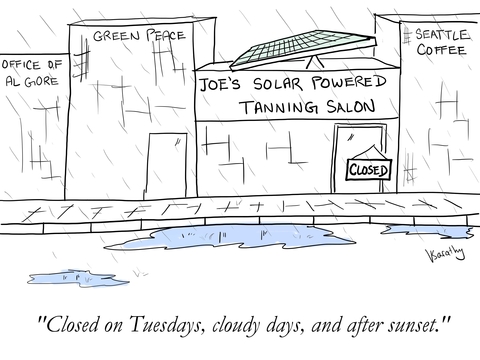 OFFICE OF
AL GORE
GREEN PEACE
JOE'S SOLAR POWERED
TANNING SALON
SEATTLE
COFFEE
CLOSED
VSarathy
"Closed on Tuesdays, cloudy days, and after sunset."